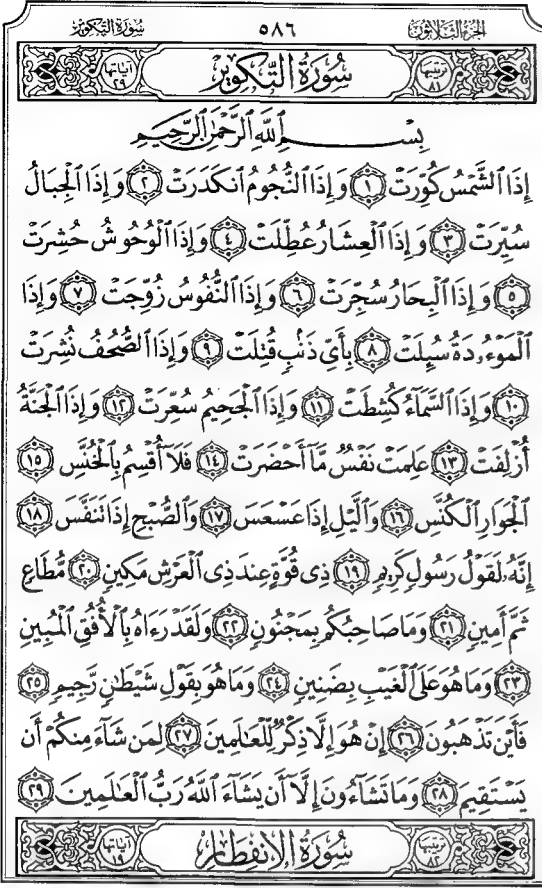 الجزء الثلاثون ٥٨٦ سورة التكوير
ترتيبها ٨١ سُورَةُ التَّكْوِيرِ آياتها ٢٩
بِسْمِ ٱللَّهِ ٱلرَّحْمَٰنِ ٱلرَّحِيمِ
إِذَا ٱلشَّمْسُ كُوِّرَتْ ١ وَإِذَا ٱلنُّجُومُ ٱنكَدَرَتْ ٢ وَإِذَا ٱلْجِبَالُ
سُيِّرَتْ ٣ وَإِذَا ٱلْعِشَارُ عُطِّلَتْ ٤ وَإِذَا ٱلْوُحُوشُ حُشِرَتْ
٥ وَإِذَا ٱلْبِحَارُ سُجِّرَتْ ٦ وَإِذَا ٱلنُّفُوسُ زُوِّجَتْ ٧ وَإِذَا
ٱلْمَوْءُۥدَةُ سُئِلَتْ ٨ بِأَىِّ ذَنۢبٍ قُتِلَتْ ٩ وَإِذَا ٱلصُّحُفُ نُشِرَتْ
١٠ وَإِذَا ٱلسَّمَآءُ كُشِطَتْ ١١ وَإِذَا ٱلْجَحِيمُ سُعِّرَتْ ١٢ وَإِذَا ٱلْجَنَّةُ
أُزْلِفَتْ ١٣ عَلِمَتْ نَفْسٌ مَّآ أَحْضَرَتْ ١٤ فَلَآ أُقْسِمُ بِٱلْخُنَّسِ ١٥
ٱلْجَوَارِ ٱلْكُنَّسِ ١٦ وَٱلَّيْلِ إِذَا عَسْعَسَ ١٧ وَٱلصُّبْحِ إِذَا تَنَفَّسَ ١٨
إِنَّهُۥ لَقَوْلُ رَسُولٍ كَرِيمٍ ١٩ ذِى قُوَّةٍ عِندَ ذِى ٱلْعَرْشِ مَكِينٍ ٢٠ مُّطَاعٍ
ثَمَّ أَمِينٍ ٢١ وَمَا صَاحِبُكُم بِمَجْنُونٍ ٢٢ وَلَقَدْ رَءَاهُ بِٱلْأُفُقِ ٱلْمُبِينِ
٢٣ وَمَا هُوَ عَلَى ٱلْغَيْبِ بِضَنِينٍ ٢٤ وَمَا هُوَ بِقَوْلِ شَيْطَٰنٍ رَّجِيمٍ ٢٥
فَأَيْنَ تَذْهَبُونَ ٢٦ إِنْ هُوَ إِلَّا ذِكْرٌ لِّلْعَٰلَمِينَ ٢٧ لِمَن شَآءَ مِنكُمْ أَن
يَسْتَقِيمَ ٢٨ وَمَا تَشَآءُونَ إِلَّآ أَن يَشَآءَ ٱللَّهُ رَبُّ ٱلْعَٰلَمِينَ ٢٩
ترتيبها ٨٢ سُورَةُ الِانفِطَارِ آياتها ١٩